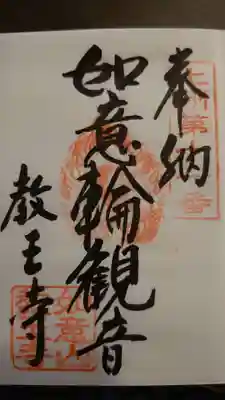 奉納
如意輪観音
教王寺